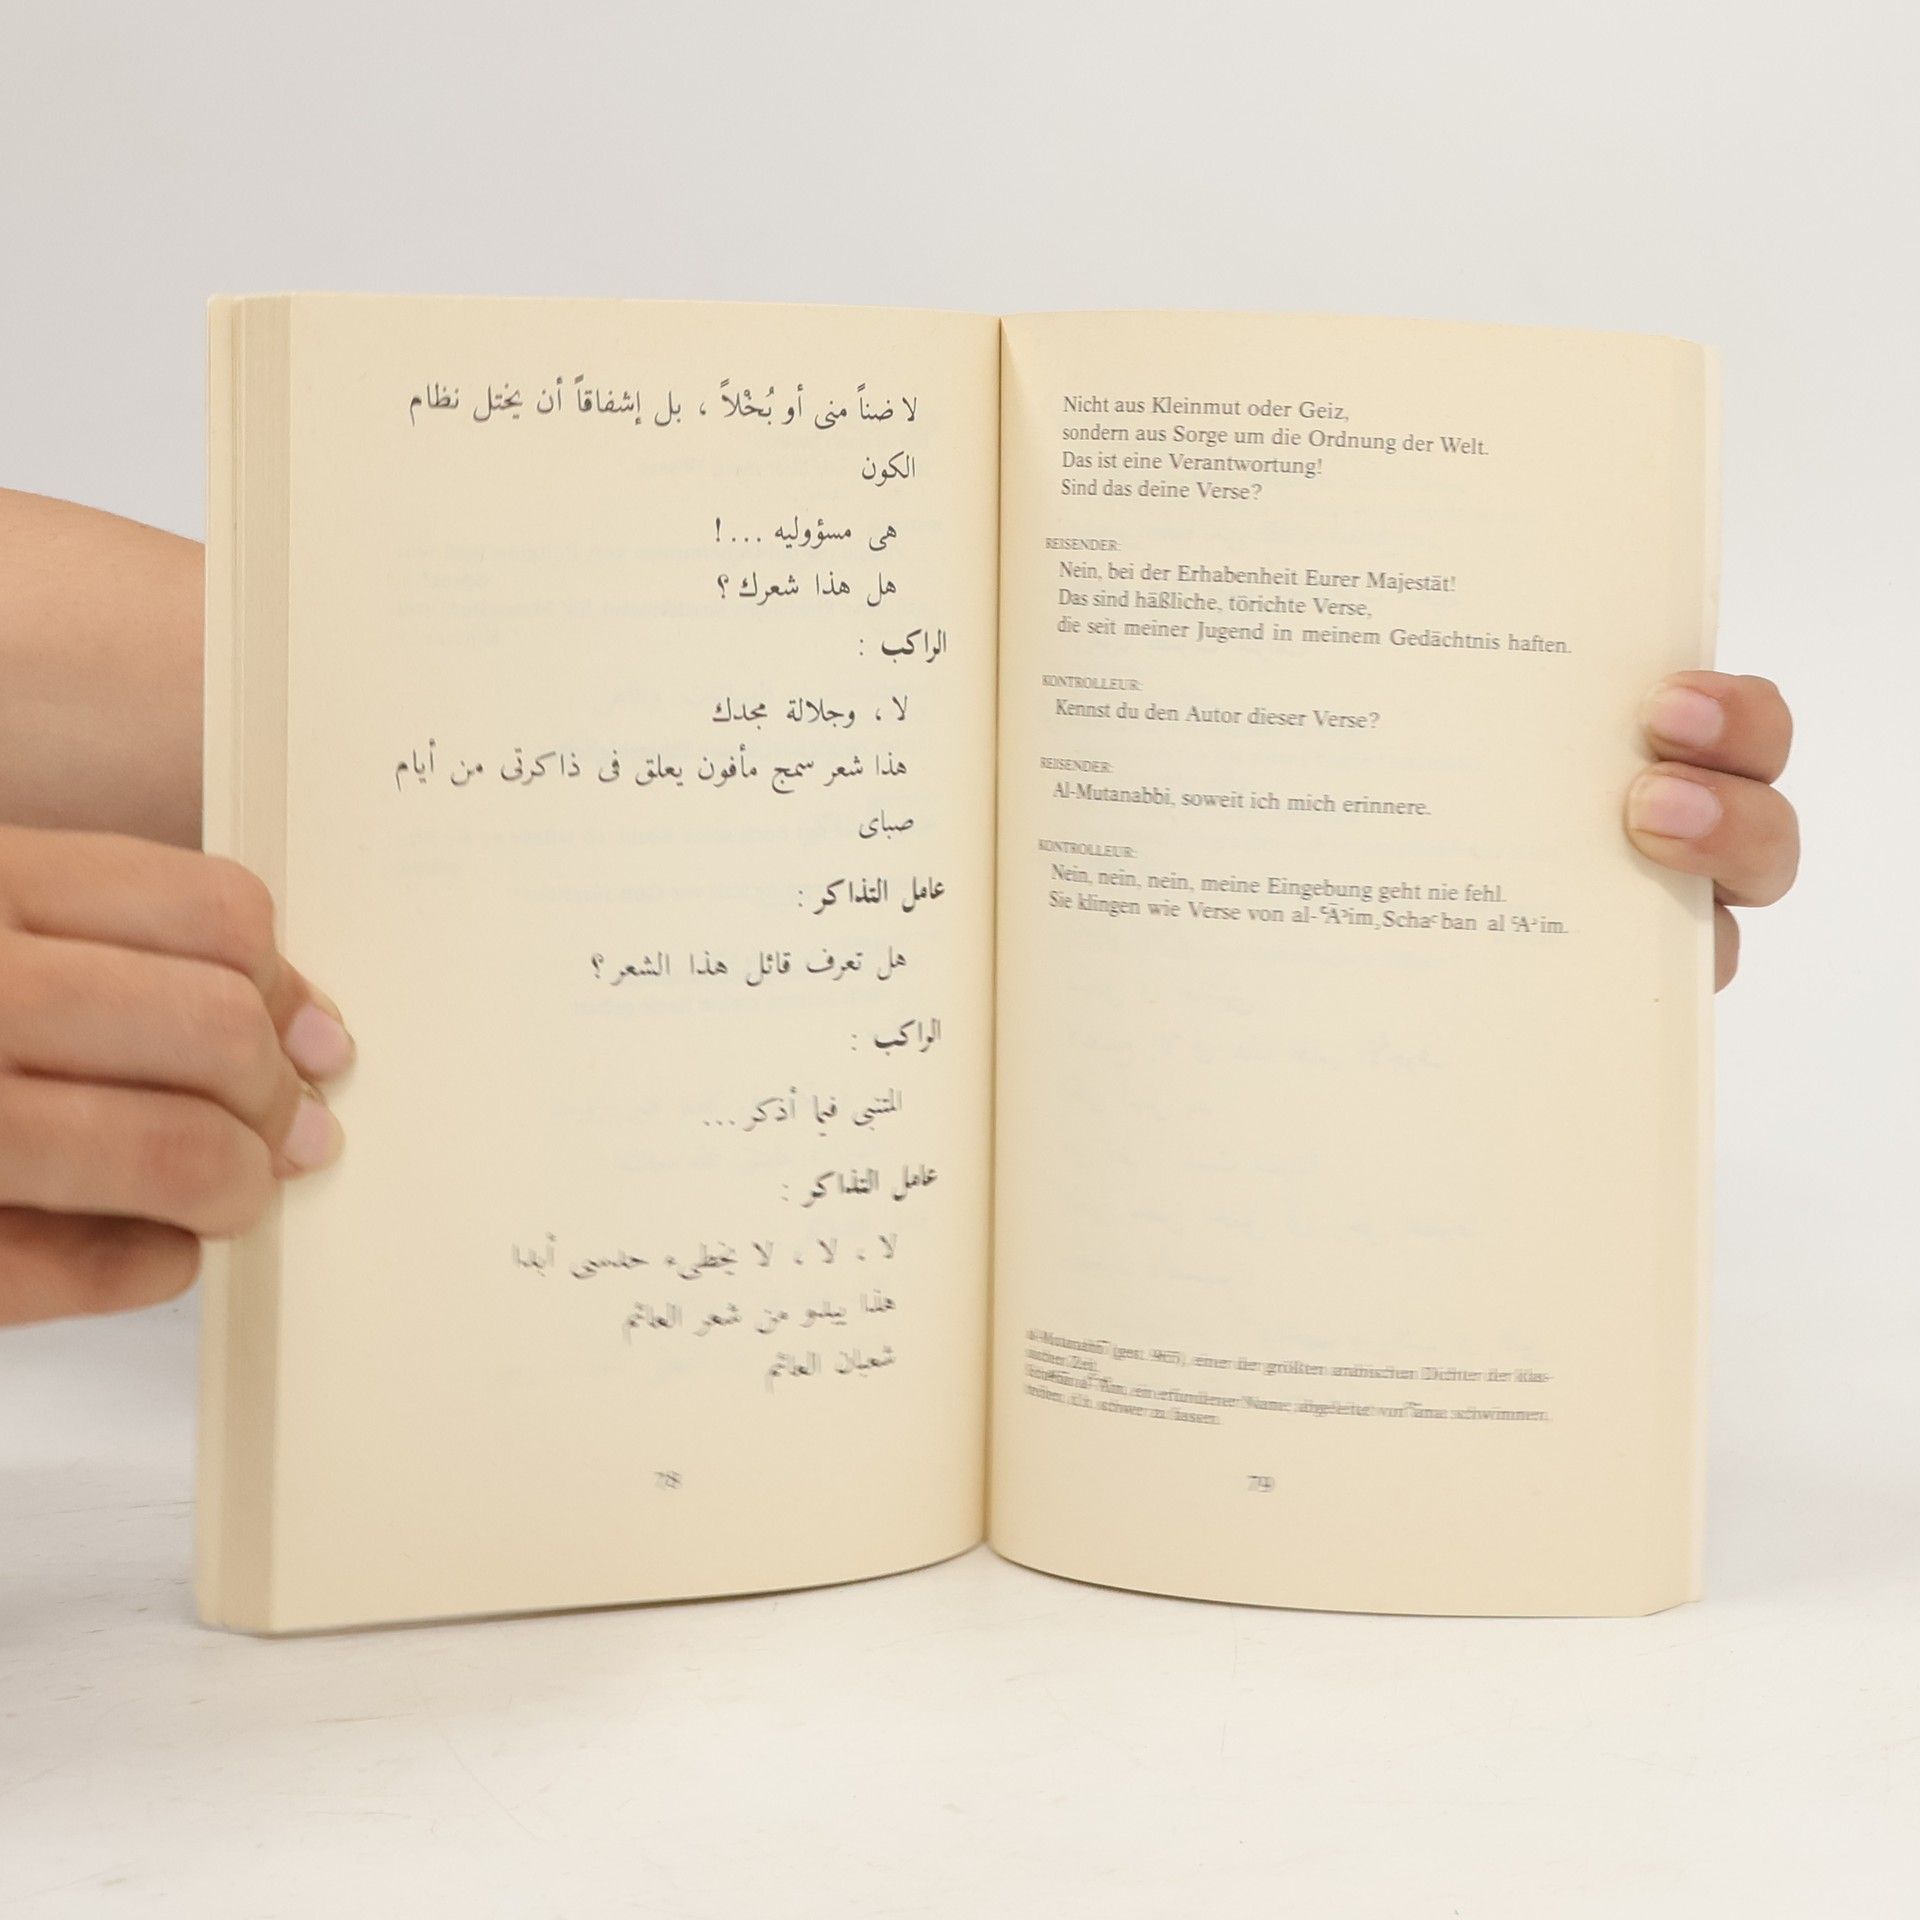 لا ضناً منى أو بُخْلاً ، بل إشفاقاً أن يختل نظام
الكون
هى مسؤوليه ...!
هل هذا شعرك ؟
الراكب :
لا ، وجلالة مجدك
هذا شعر سمج مأفون يعلق فى ذاكرتى من أيام
صباى
عامل التذاكر :
هل تعرف قائل هذا الشعر ؟
الراكب :
المتنبى فيما أذكر ...
عامل التذاكر :
لا ، لا ، لا يخطىء حدسى أبدا
هذا يبدو من شعر العائم
شعبان العائم
78
Nicht aus Kleinmut oder Geiz,
sondern aus Sorge um die Ordnung der Welt.
Das ist eine Verantwortung!
Sind das deine Verse?
REISENDER:
Nein, bei der Erhabenheit Eurer Majestät!
Das sind häßliche, törichte Verse,
die seit meiner Jugend in meinem Gedächtnis haften.
KONTROLLEUR:
Kennst du den Autor dieser Verse?
REISENDER:
Al-Mutanabbi, soweit ich mich erinnere.
KONTROLLEUR:
Nein, nein, nein, meine Eingebung geht nie fehl.
Sie klingen wie Verse von al-ʿĀʾim, Schaʿban al ʿAʾim.
al-Mutanabbī (gest. 965), einer der größten arabischen Dichter der klas-
sischen Zeit.
ein erfundener Name, abgeleitet von ʿāma: schwimmen,
treiben, d.h. schwer zu fassen.
79